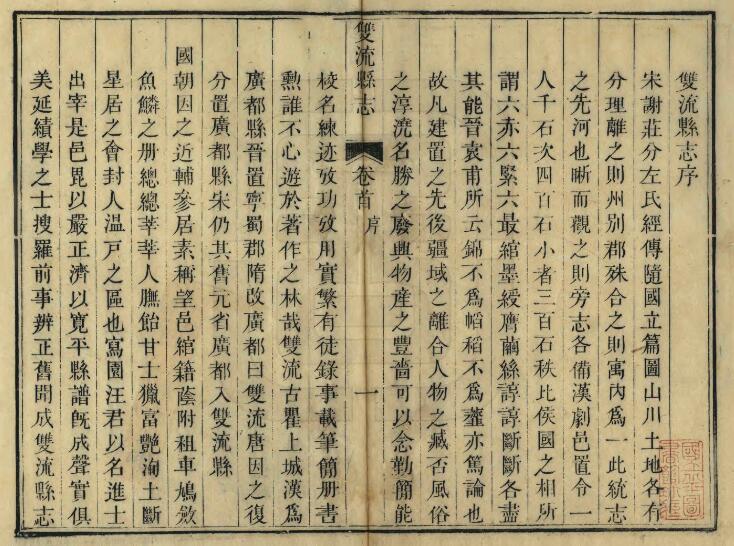 雙流縣志序
宋謝莊分左氏經傳隨國立篇圖山川土地各有
分理離之則州別郡殊合之則寓內爲一此統志
之先河也晰而觀之則旁志各備漢劇邑置令一
人千石次四百石小者三百石秩比侯國之相所
謂六赤六緊六最綰墨綬膺繭絲諄諄斷斷各盡
其能晉袁甫所云錦不爲幍稻不爲虀亦篤論也
故凡建置之先後疆域之離合人物之臧否風俗
之淳澆名勝之廢興物産之豐嗇可以念勤簡能
雙流縣志
卷首
序
一
校名練迹攷功攷用實繁有徒錄事載筆簡册書
勲誰不心遊於著作之林哉雙流古瞿上城漢爲
廣都縣晉置寧蜀郡隋改廣都曰雙流唐因之復
分置廣都縣宋仍其舊元省廣都入雙流縣
國朝因之近輔參居素稱望邑綰籍蔭附租車鳩斂
魚鱗之册總總莘莘人膴飴甘士獵富艷洵土斷
星居之會封人温戸之區也寫園汪君以名進士
出宰是邑毘以嚴正濟以寬平縣譜旣成聲實俱
美延績學之士搜羅前事辨正舊聞成雙流縣志